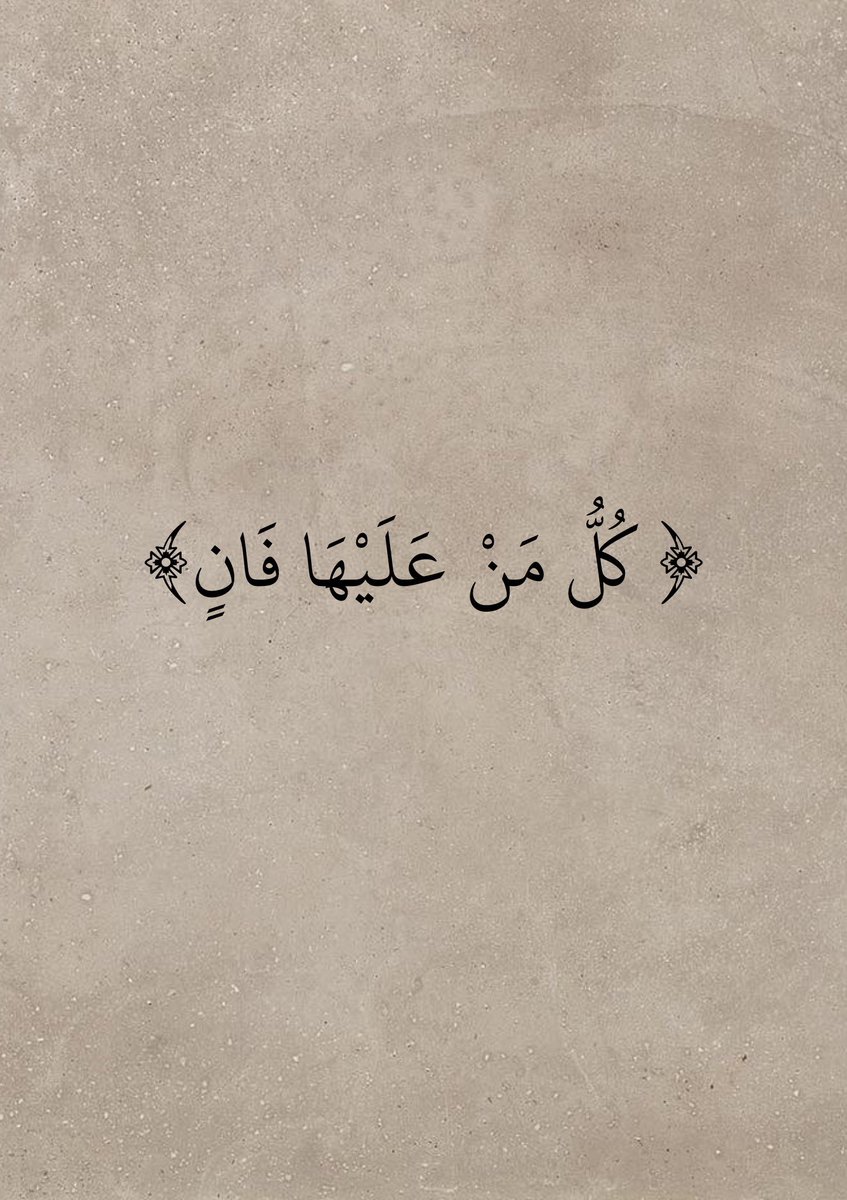 ﴿ كُلُّ مَنْ عَلَيْهَا فَانٍ ﴾